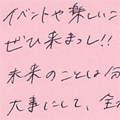 イベントや楽しいこ
ぜひ来まっし!!
未来のことは分
大事にして、全